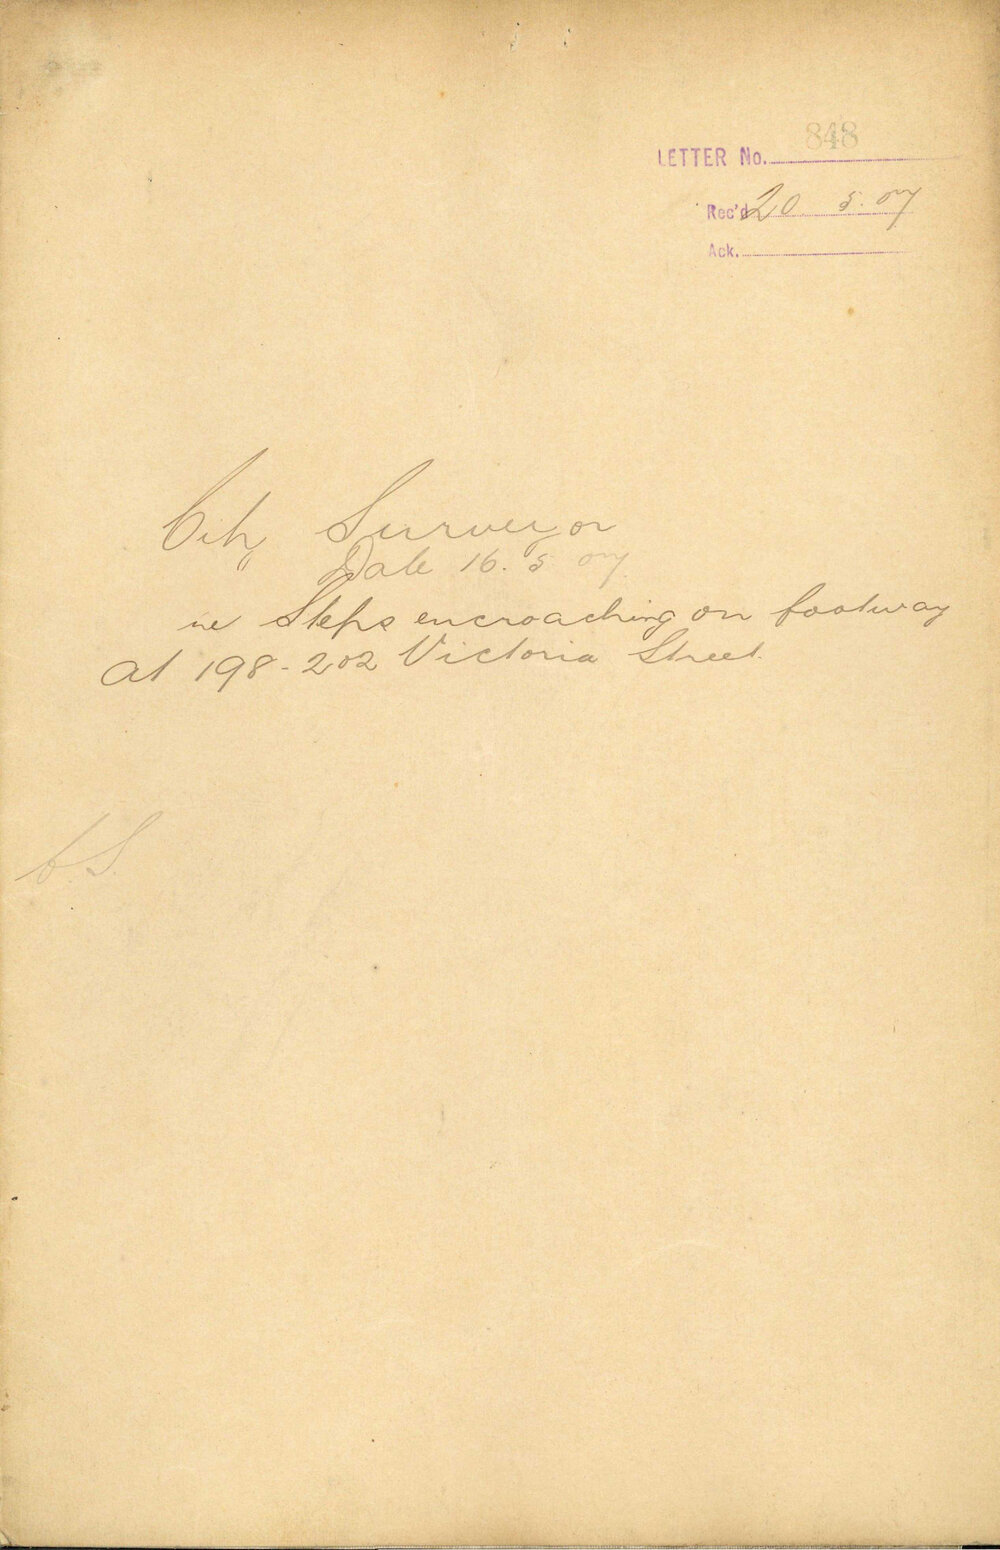 LETTER No. 848
Rec'd 20 5. 07
Ack.
City Surveyor
Date 16. 5 07.
re Steps encroaching on footway
at 198-202 Victoria Street.
C.S.